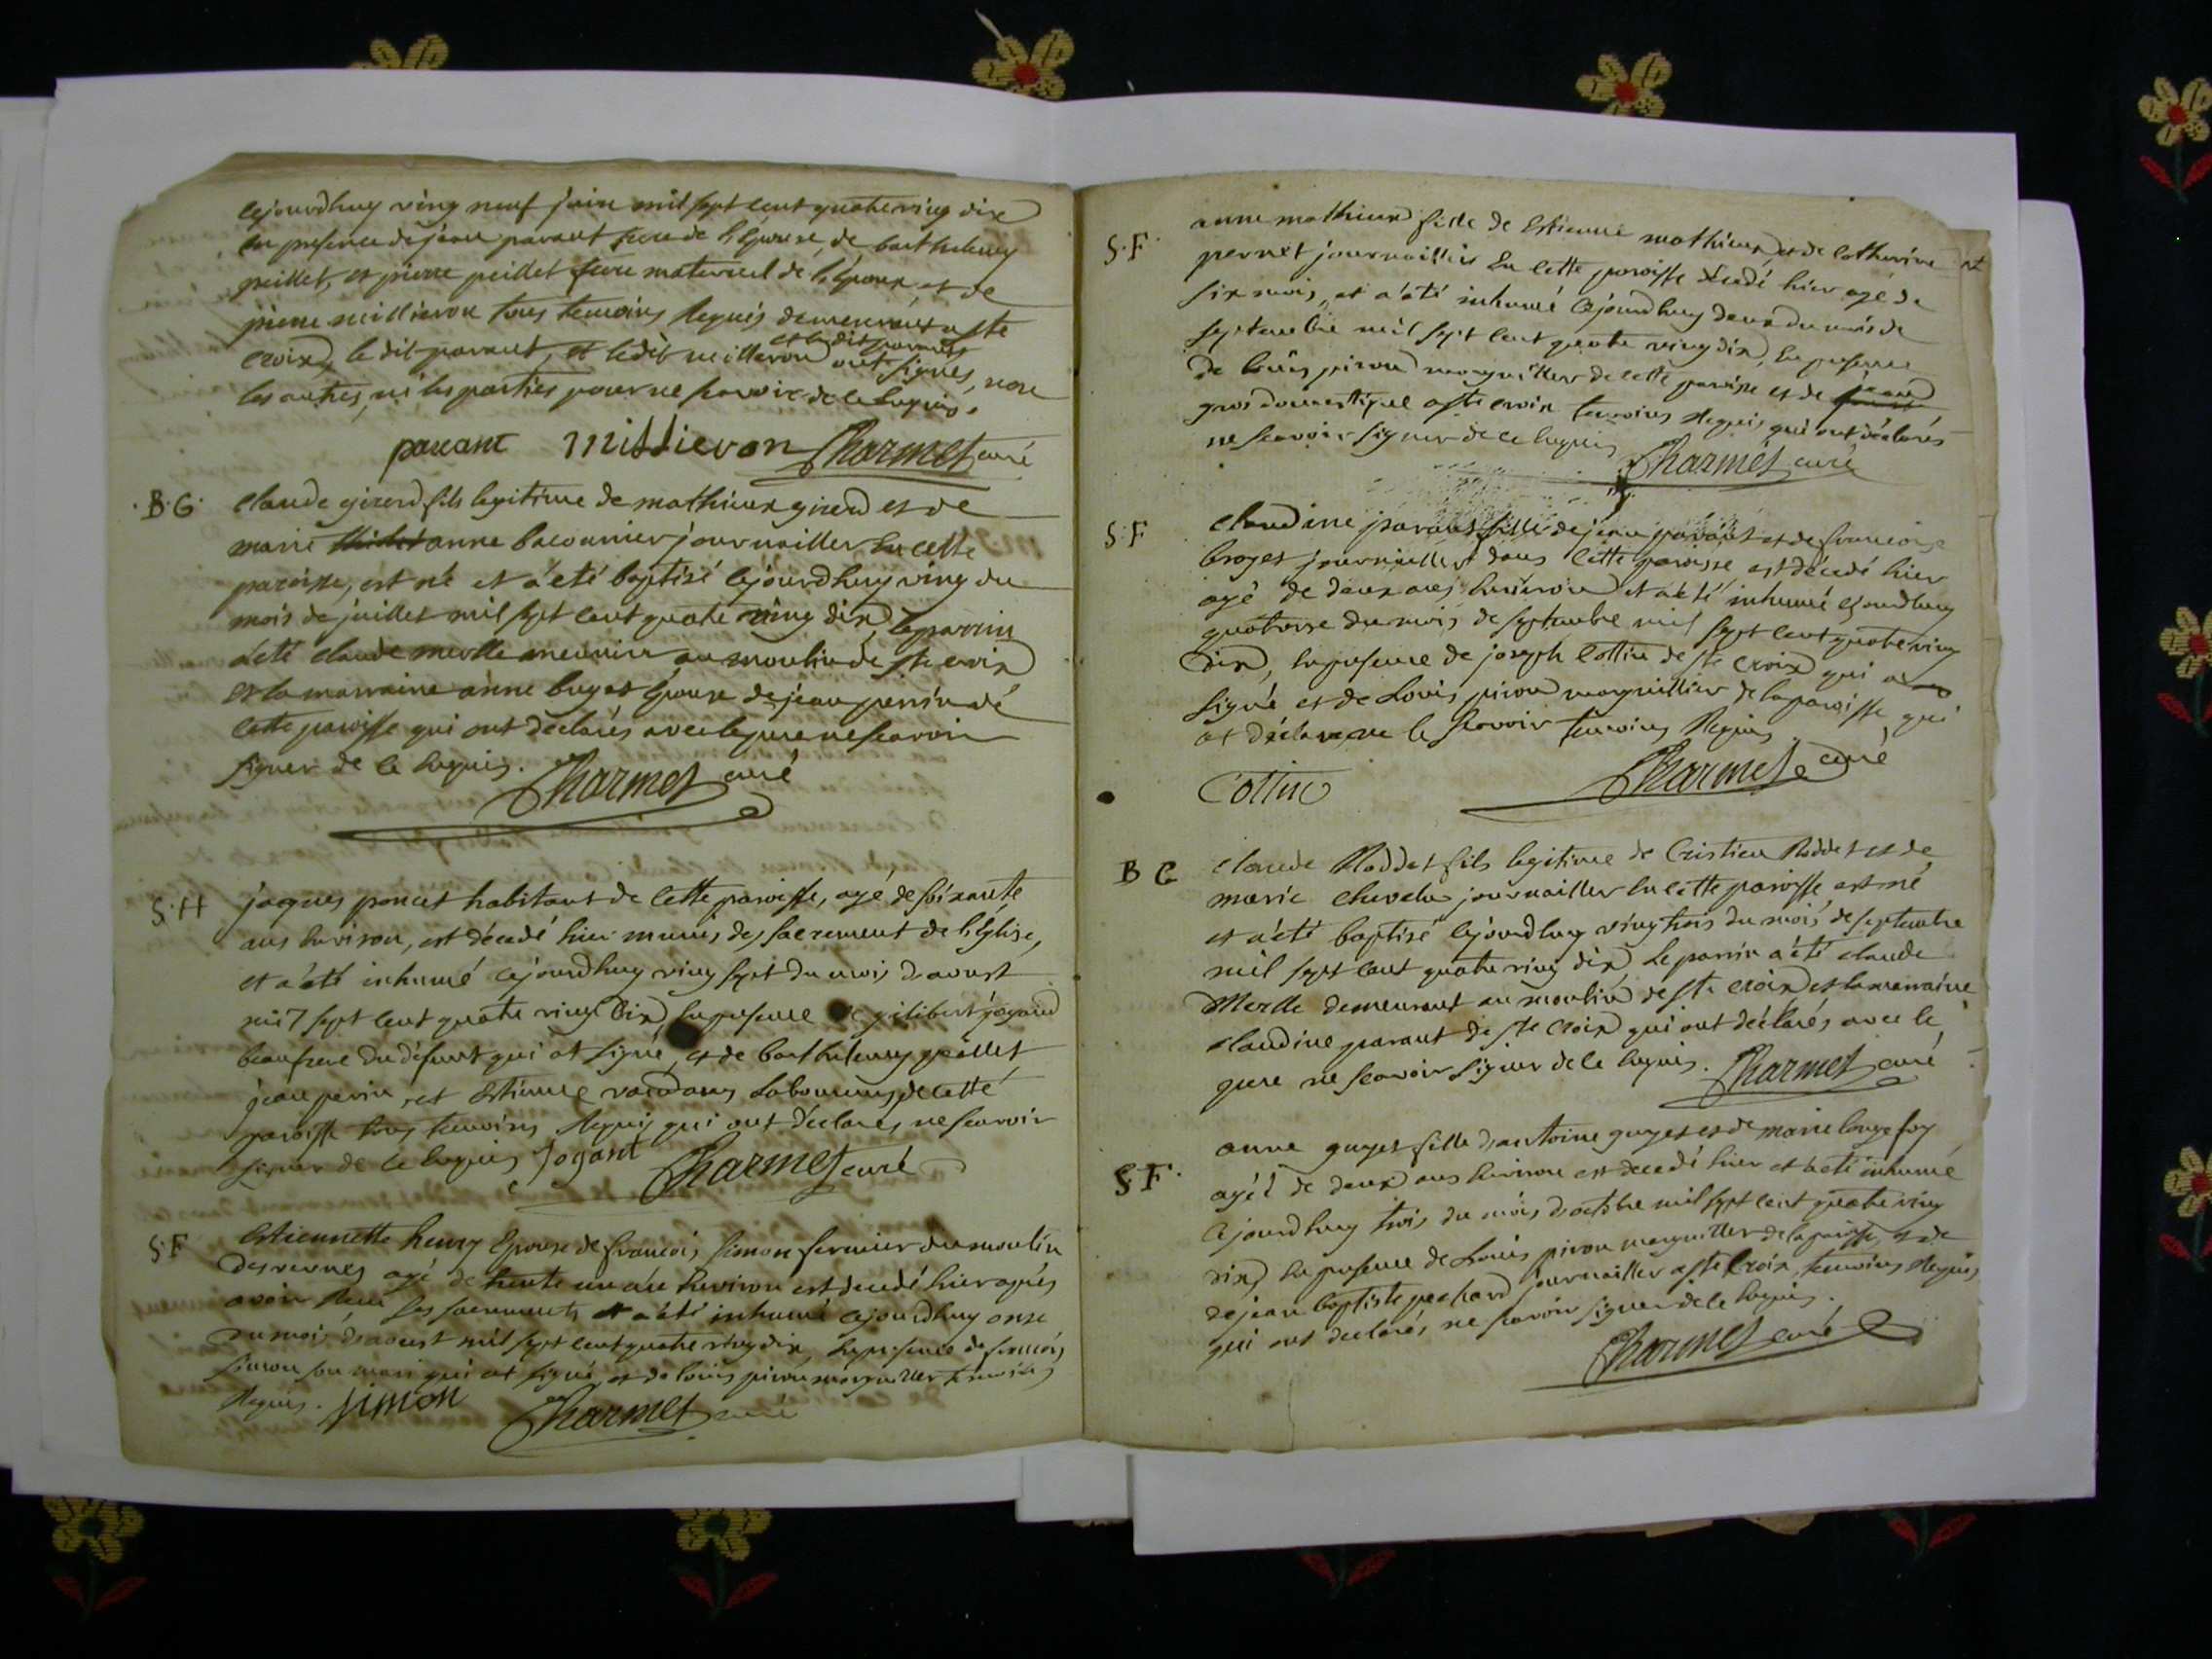 cejourdhuy ving neuf juin mil sept cent quatre ving dix
en presence de jean parant frere de l'épouse, de barthelemy
peillet, et pierre peillet frere maternel de l'époux et de
pierre millieron tous temoins requis demeurant a ste
et ledit parant
croix, le dit parant, et ledit millieron ont signés, non
les autres, ni les parties pour ne savoir de ce enquis.
parant millieron Charmet curé
B.G. Claude girerd fils legitime de mathieux girerd et de
marie anne bacounier journaillier en cette
paroisse, est né et a été baptisé cejourdhuy ving du
mois de juillet mil sept cent quatre ving dix, le parrin
a été claude merlle meunier au moulin de ste croix
et la marraine anne buget épouse de jean perrin de
cette paroisse qui ont declarés avec le pere ne scavoir
signer de ce enquis. Charmet curé
S.H jaques poncet habitant de cette paroisse, agé de soixante
ans environ, est décedé hier munis des sacrement de l'église,
et a été inhumé cejourdhuy ving sept du mois d'avoust
mil sept cent quatre ving dix, en presence de gilibert jogand
beaufrere du défunt qui at signé, et de barthelemy peillet
jean perrin, et Estienne laboureurs de cette
paroisse tous temoins requis qui ont déclarés ne scavoir
signer de ce enquis jogant Charmet curé
S.F Estiennette henry épouse de francois simon fermier du moulin
des vernes agé de trente un an environ est decedé hier apres
avoir recu ses sacrements et a été inhumé cejourdhuy onze
du mois d'aoust mil sept cent quatre ving dix, en presence de francois
simon son mari qui at signé, et de louis piron marguillier temoins
requis. simon Charmet curé
S.F. anne mathieux fille de Estienne mathieux, et de catherine
pernet journailliers en cette paroisse decedé hier agé de
six mois, et a été inhumé cejourdhuy deux du mois de
septembre mil sept cent quatre ving dix, en presence
de louis piron marguillier de cette paroisse et de jean
gros domestique a ste croix temoins requis qui ont déclarés
ne scavoir signer de ce enquis Charmet curé
S.F Claudine parant fille de jean parant et de francoise
broyet journaillier dans cette paroisse est décedé hier
agé de deux ans environ et a été inhumé cejourdhuy
quatorse du mois de septembre mil sept cent quatre ving
dix, en presence de joseph Collin de ste croix qui a
signé et de Louis piron marguillier de la paroisse qui
at déclaré ne le scavoir temoins requis
Collin Charmet curé
B G Claude Roddet fils legitime de Cristien Roddet et de
marie chevelu journaillier en cette paroisse est né
et a été baptisé cejourdhuy ving trois du mois de septembre
mil sept cent quatre ving dix, le parrin a été claude
Merlle demeurant au moulin de ste croix et la marraine
claudine parant de ste croix qui ont déclarés avec le
pere ne scavoir signer de ce enquis. Charmet curé
S.F. anne guyet fille d'antoine guyet et de marie longefoy
agéé de deux ans environ est decedé hier et a été inhumé
cejourdhuy trois du mois d'octobre mil sept cent quatre ving
dix, en presence de Louis piron marguillier de la paroisse, et de
de jean baptiste pechard journaillier a ste Croix, temoins requis
qui ont declarés, ne scavoir signer de ce enquis.
Charmet curé